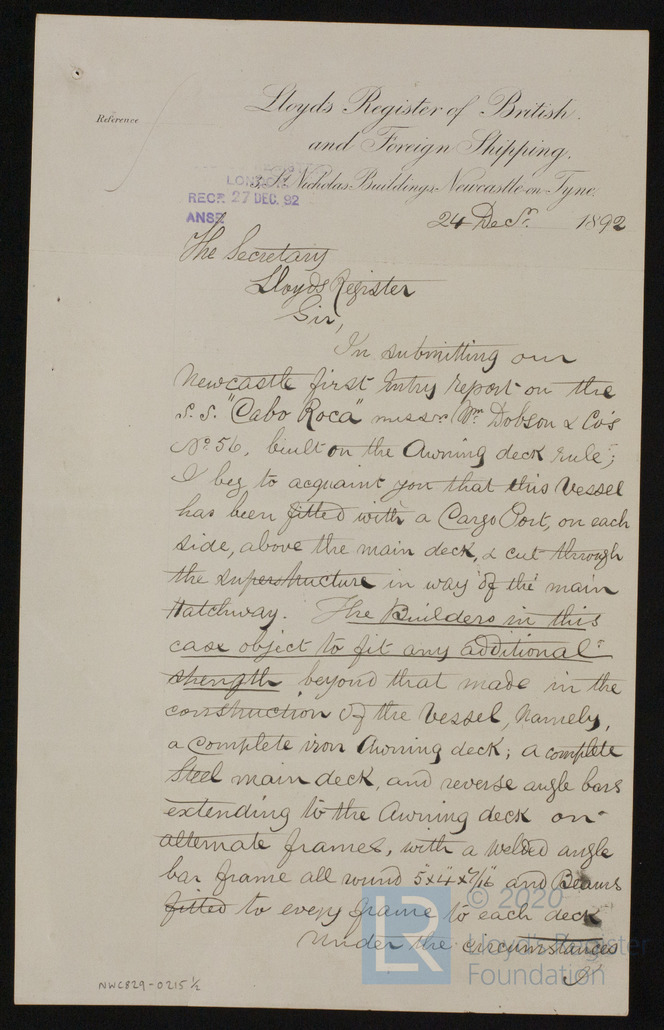 Lloyds Register of British
and Foreign Shipping,
Reference
St. Nicholas Buildings, Newcastle-on-Tyne.
LONDON
RECD 27 DEC. 92
ANSD
24 Decr. 1892
The Secretary
Lloyds Register
Sir,
In submitting our
Newcastle first Entry report on the
S.S. "Cabo Roca" messrs Wm. Dobson & Co's
No. 56, built on the Awning deck rule;
I beg to acquaint you that this Vessel
has been fitted with a Cargo Port, on each
side, above the main deck, & cut through
the superstructure in way of the main
Hatchway. The Builders in this
case object to fit any additional
strength beyond that made in the
construction of the Vessel, namely,
a complete iron Awning deck; a complete
Steel main deck, and reverse angle bars
extending to the Awning deck on
alternate frames, with a welded angle
bar frame all round 5"x4"x7/16" and Beams
fitted to every frame to each deck
Under the circumstances
I
NWC829-0215 1/2
© 2020
LR
Lloyd's Register
Foundation